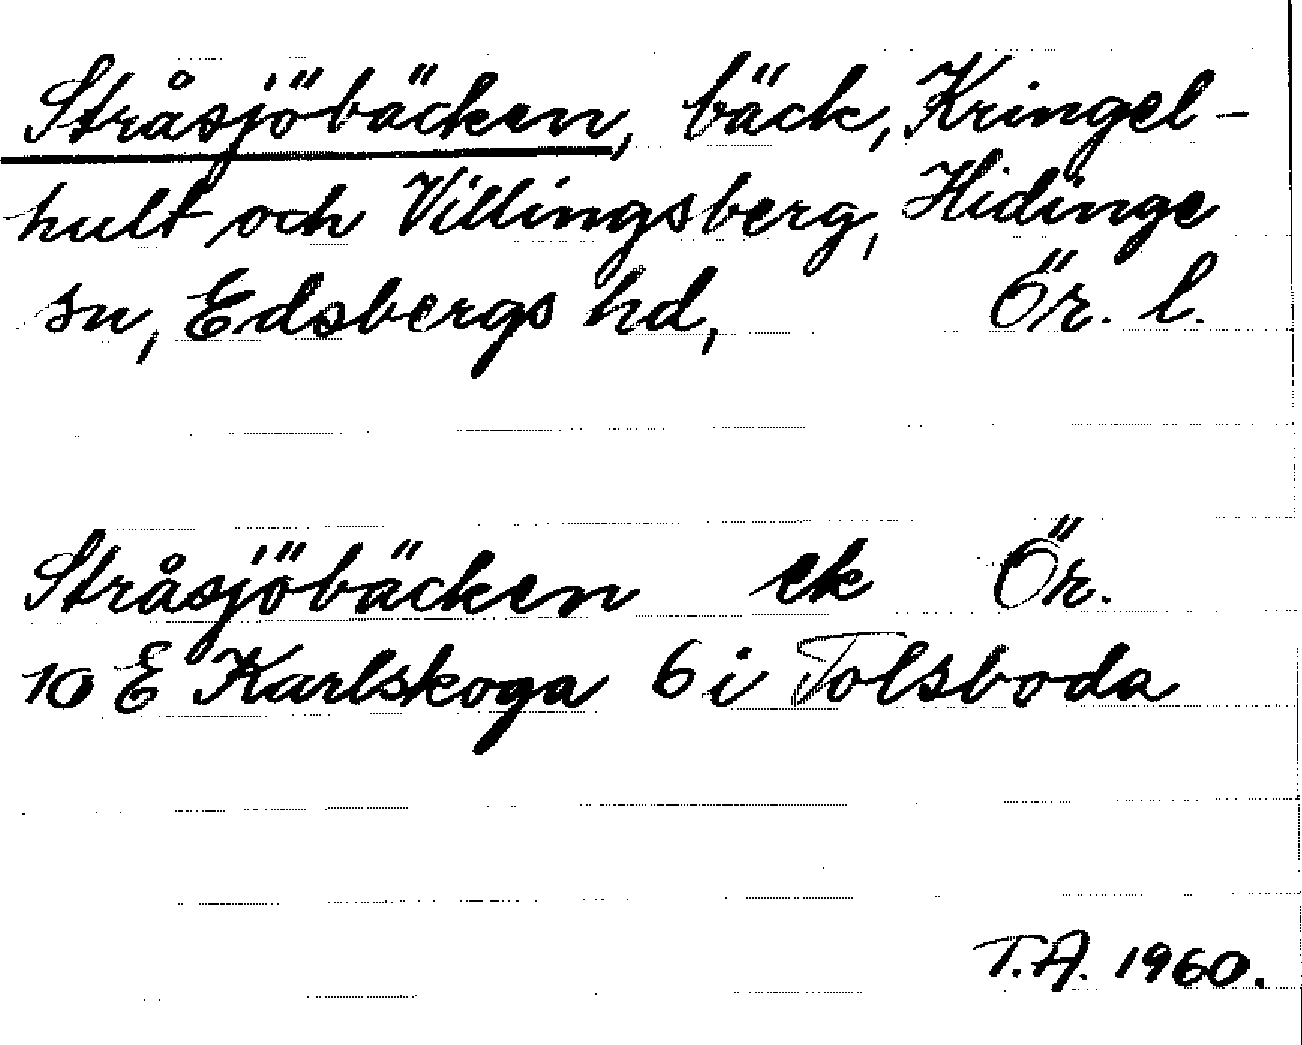 Stråsjöbäcken, bäck, Kringel-
hult och Villingsberg, Hidinge
sn, Edsbergs hd, Ör. l.
Stråsjöbäcken ek Ör.
10 E Karlskoga 6 i Tolsboda
T.A. 1960.